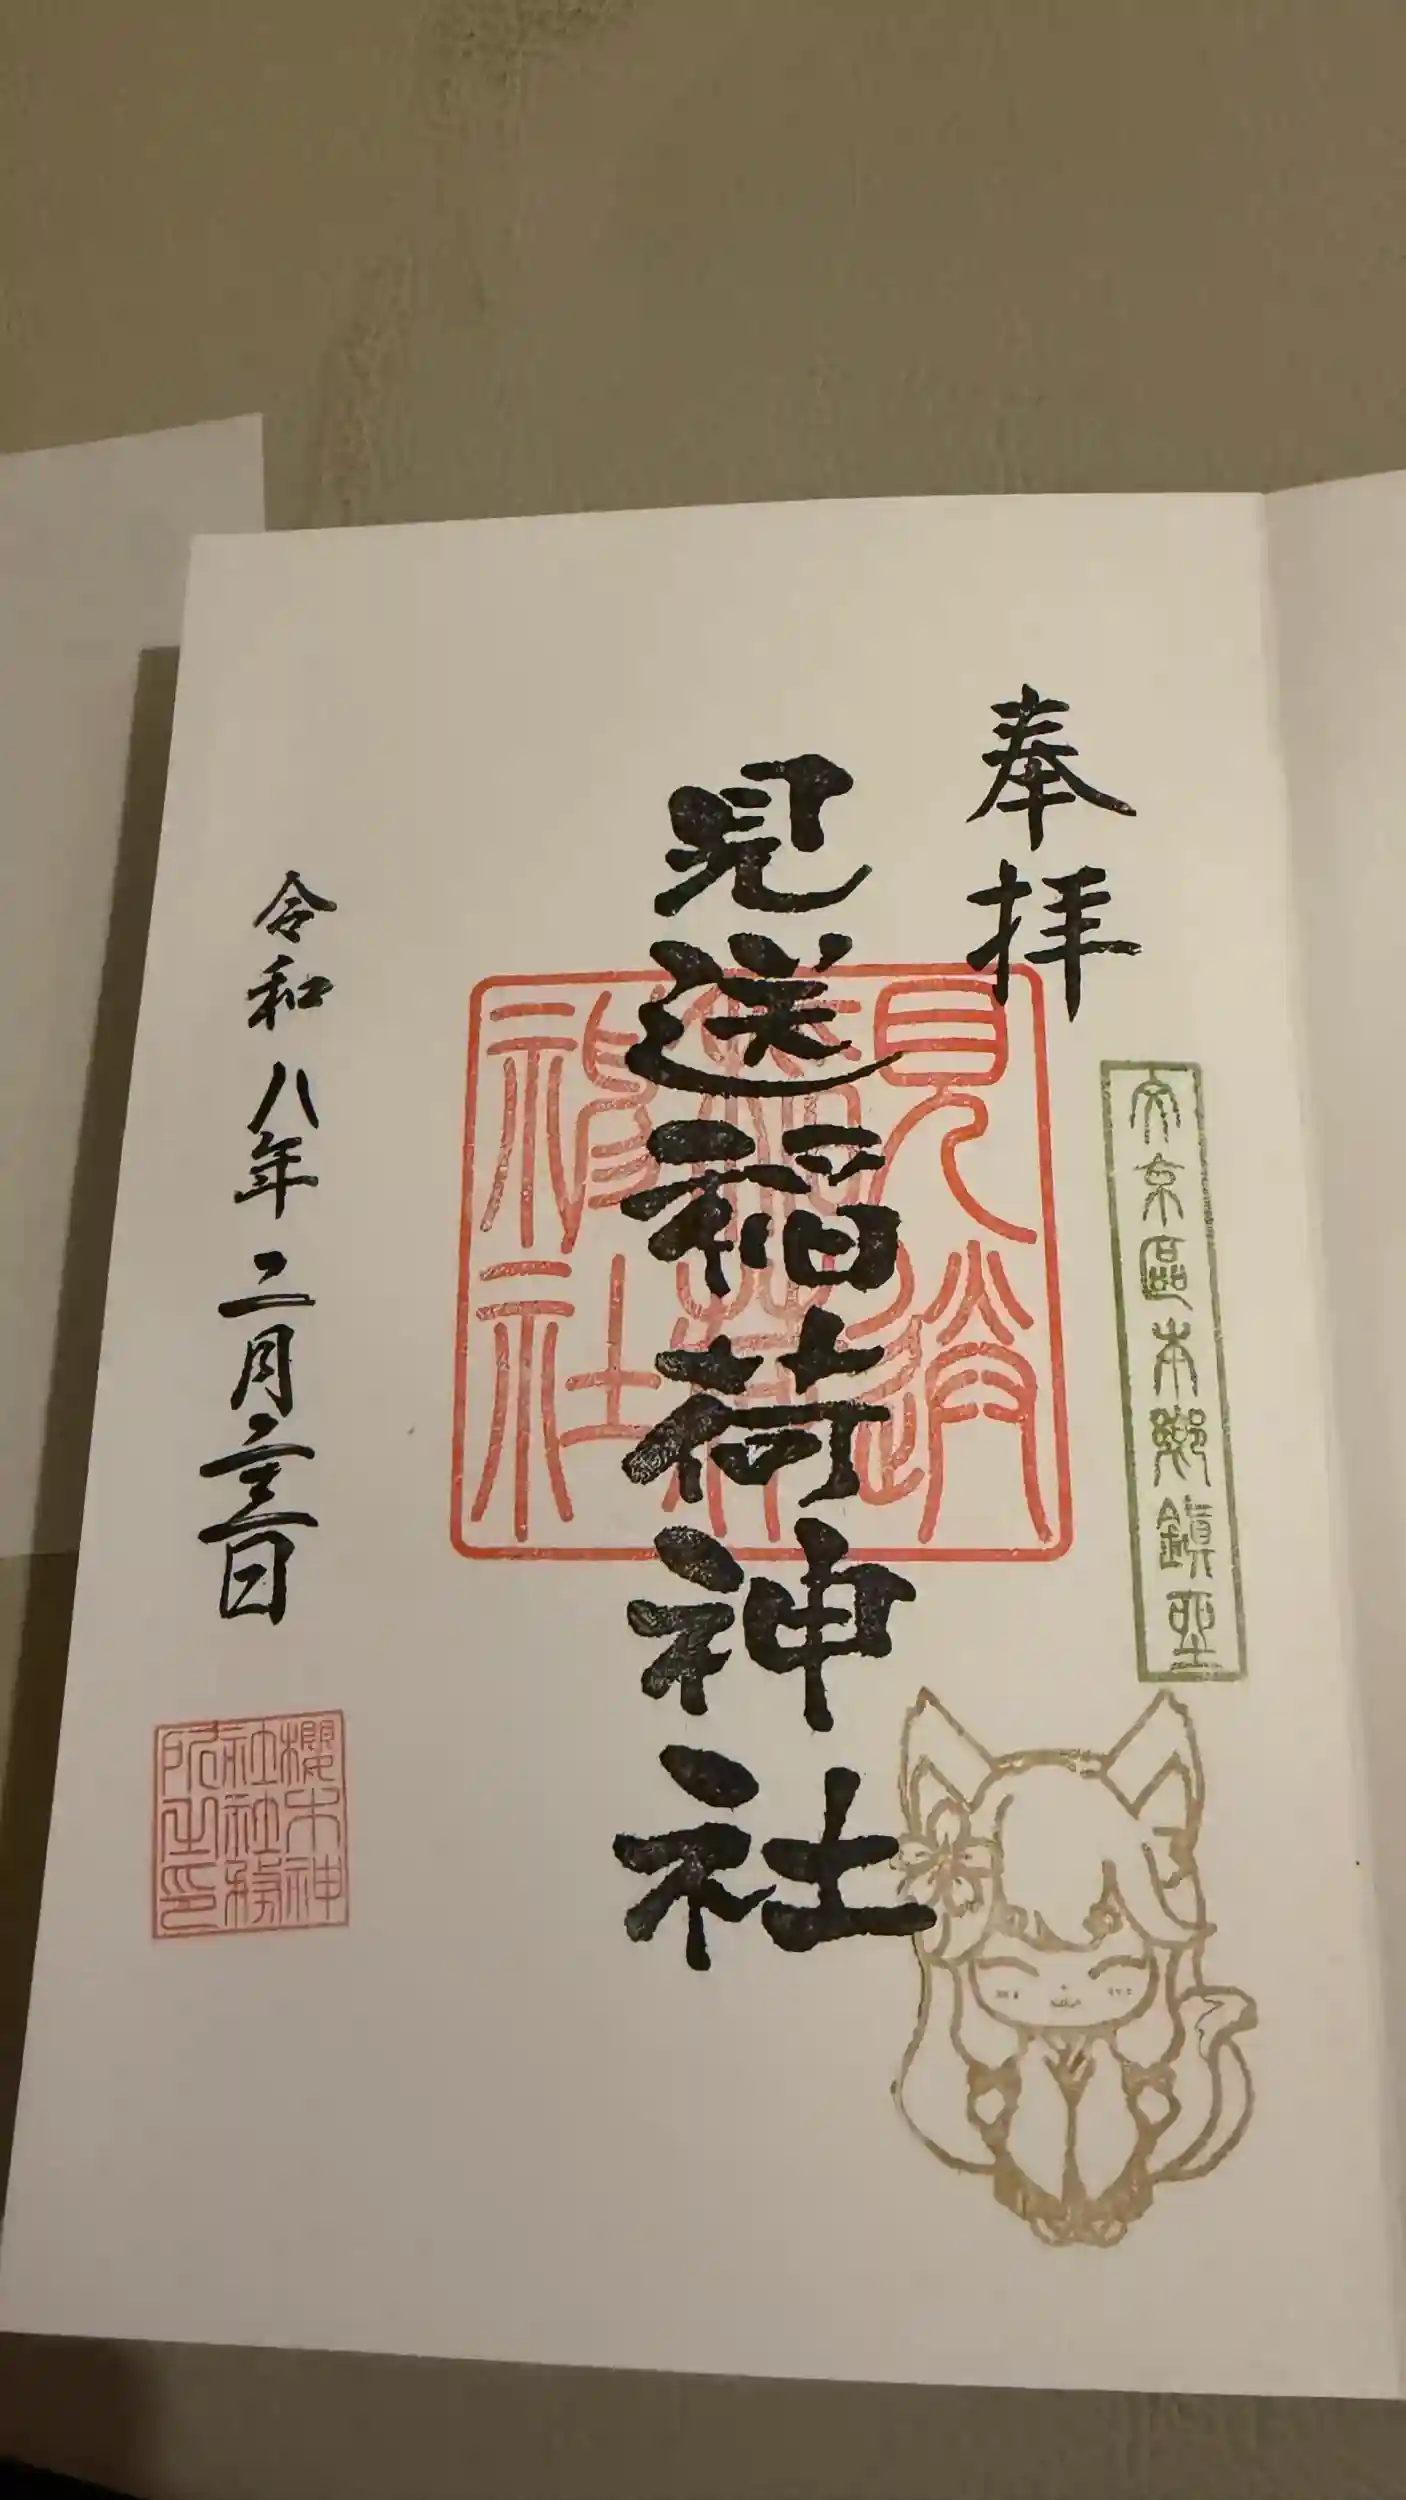 奉拝
文京區本郷鎮坐
見送稲荷神社
見送稲荷神社
令和八年二月二三日
櫻木神
社社務
所之印